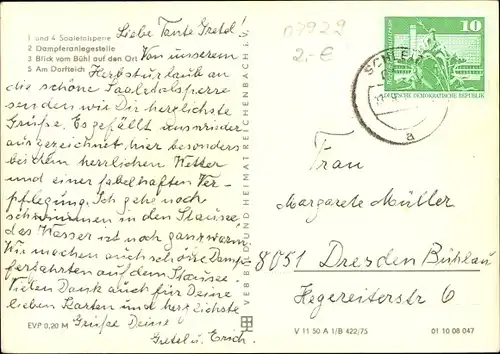 1 und 4 Saaletalsperre
2 Dampferanlegestelle
3 Blick vom Bühl auf den Ort
5 Am Dorfteich
Liebe Tante Gretel!
Von unserem
Herbsturlaub an
die schöne Saaletalsperre
senden wir Die herzlichste
Grüße. Es gefällt uns wieder
ausgezeichnet, hier besonders
bei dem herrlichen Wetter
und einer fabelhaften Ver-
pflegung. Ich gehe noch
schwimmen in den Stausee
das Wasser ist noch ganz warm.
Wir machen auch schöne Dampf-
erfahrten auf dem Stausee.
Vielen Dank auch für Deine
lieben Karten und herzlichste
Grüße Deine
Gretel u. Erich.
EVP 0,20 M
VEB BILD UND HEIMAT REICHENBACH
07929
2,- €
10
DEUTSCHE DEMOKRATISCHE REPUBLIK
SCHLEIZ
a
Frau
Margarete Müller
8051 Dresden Bühlau
Hegereiterstr 6
V 11 50 A 1/B 422/75
01 10 08 047